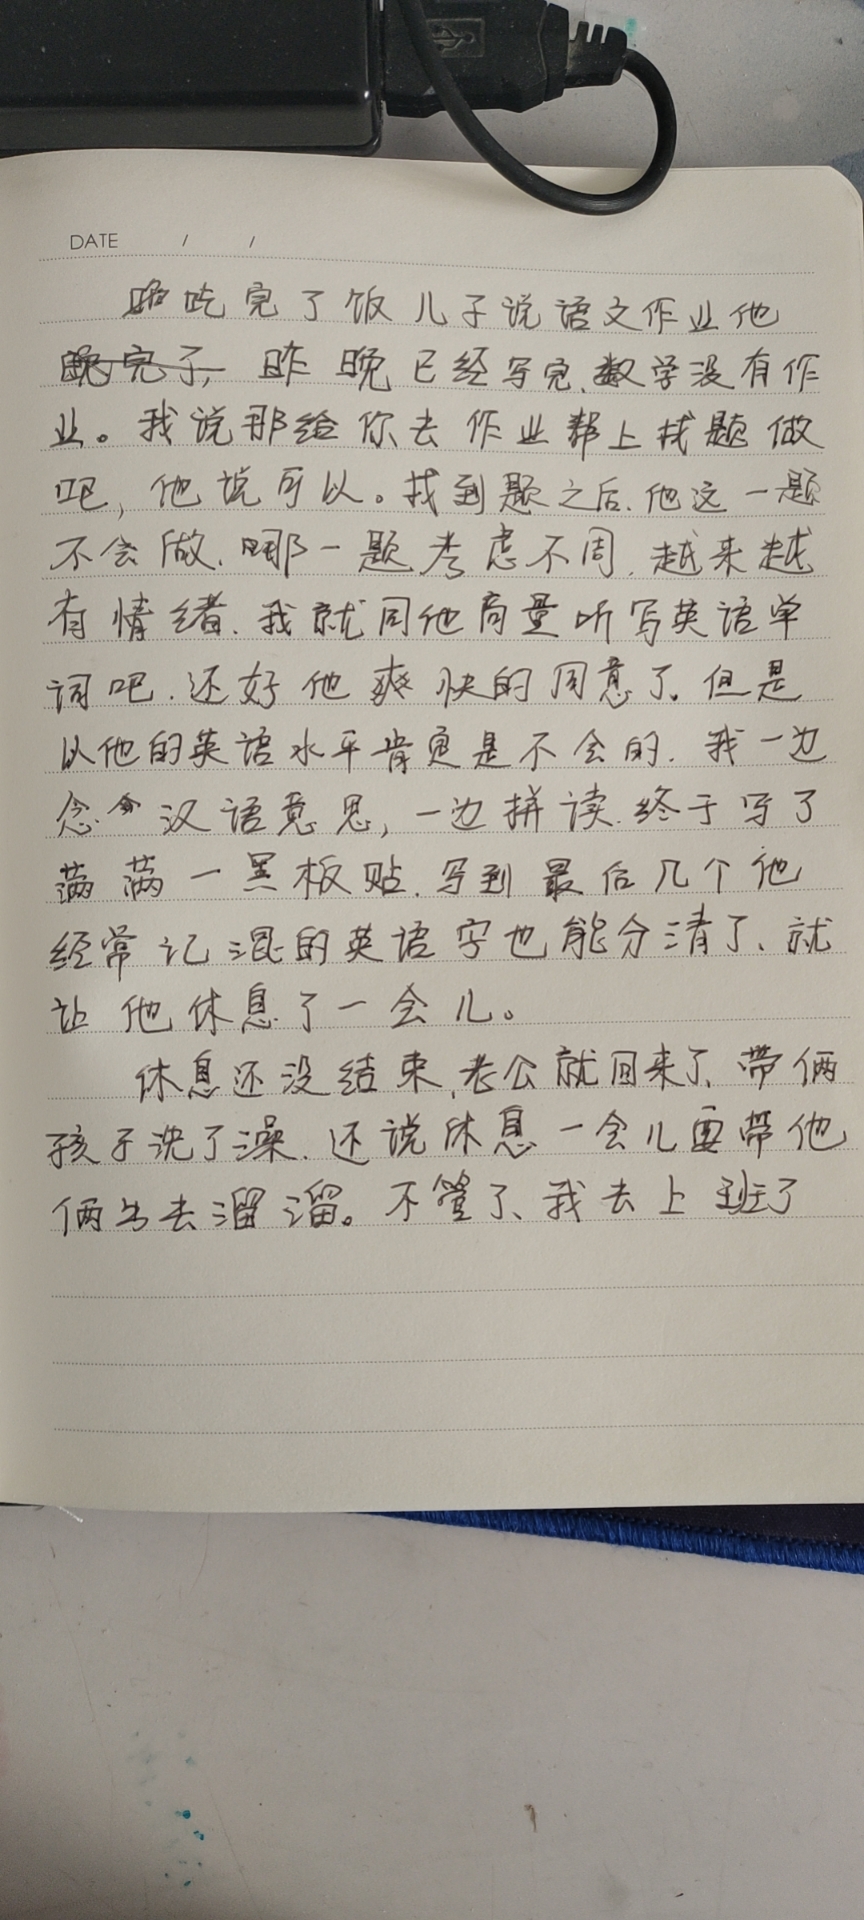 DATE / /
吃完了饭儿子说语文作业他
昨晚已经写完、数学没有作
业。我说那给你去作业帮上找题做
吧，他说可以。找到题之后、他这一题
不会做、哪一题考虑不周、越来越
有情绪、我就同他商量听写英语单
词吧、还好他爽快的同意了。但是
以他的英语水平肯定是不会的、我一边
念汉语意思，一边拼读、终于写了
满满一黑板贴、写到最后几个他
经常记混的英语字也能分清了、就
让他休息了一会儿。
休息还没结束、老公就回来了、带俩
孩子洗了澡、还说休息一会儿要带他
俩出去溜溜。不管了、我去上班了